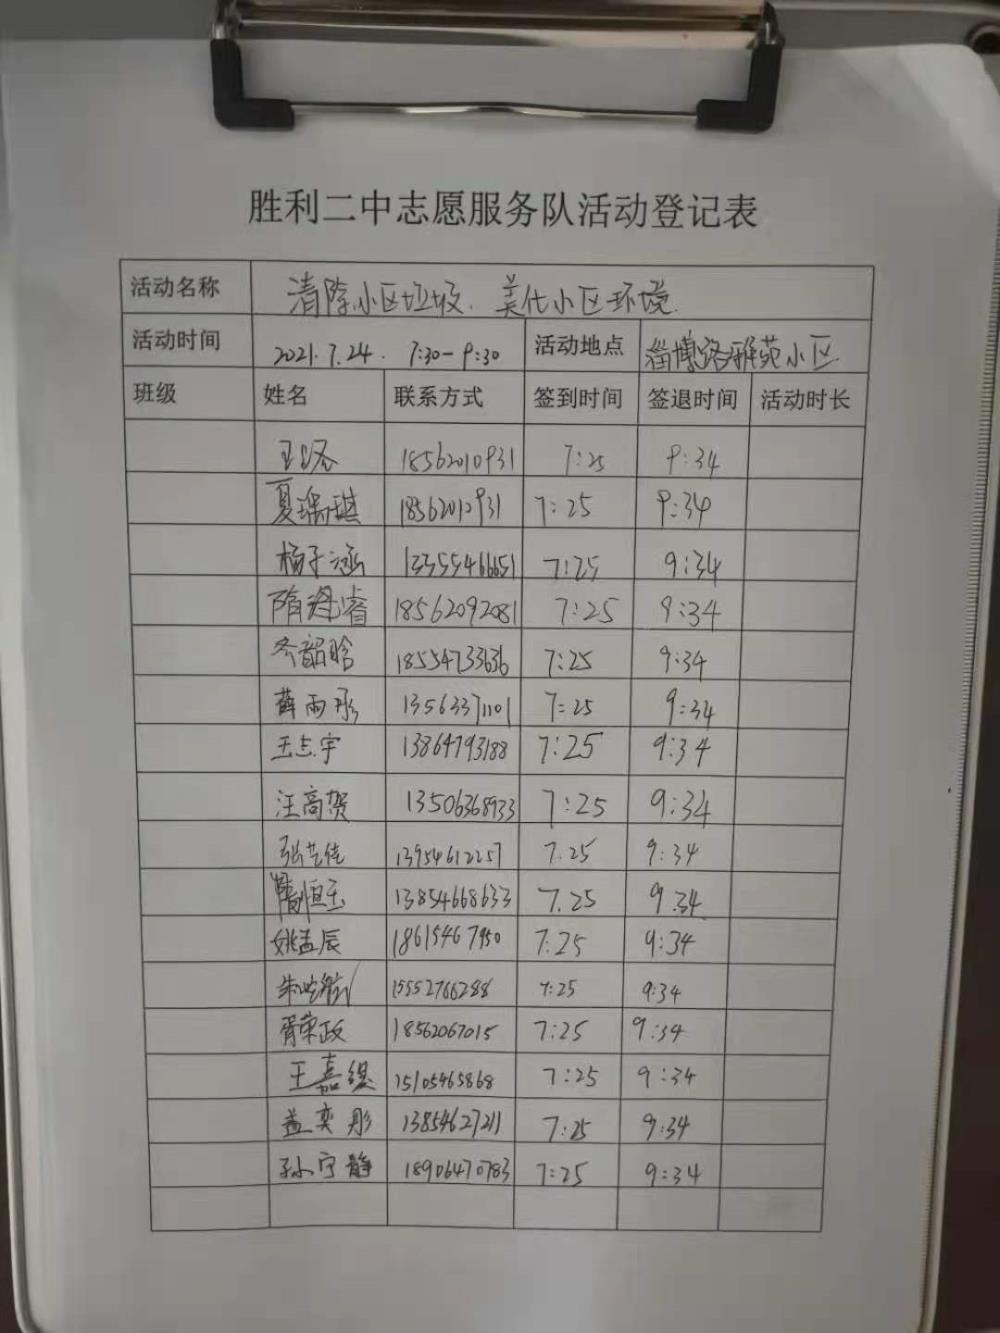 胜利二中志愿服务队活动登记表
活动名称 清除小区垃圾、美化小区环境.
活动时间 2021.7.24. 7:30-9:30 活动地点 淄博路雅苑小区
班级 姓名 联系方式 签到时间 签退时间 活动时长
18562010931 7:25 9:34
夏瑞琪 18562010931 7:25 9:34
杨子涵 13355466651 7:25 9:34
隋 睿 18562092081 7:25 9:34
韶晗 18554733636 7:25 9:34
薛雨彤 13563371101 7:25 9:34
王志宇 13864793188 7:25 9:34
汪高贺 13506368933 7:25 9:34
张艺佳 13954612257 7.25 9:34
恒玉 13854668633 7.25 9.34
姚孟辰 18615467950 7.25 9:34
朱 15552766288 7:25 9:34
胥荣政 18562067015 7:25 9:34
王嘉缇 15105465868 7:25 9:34
盖奕彤 13854627211 7:25 9:34
孙宁静 18906470783 7:25 9:34